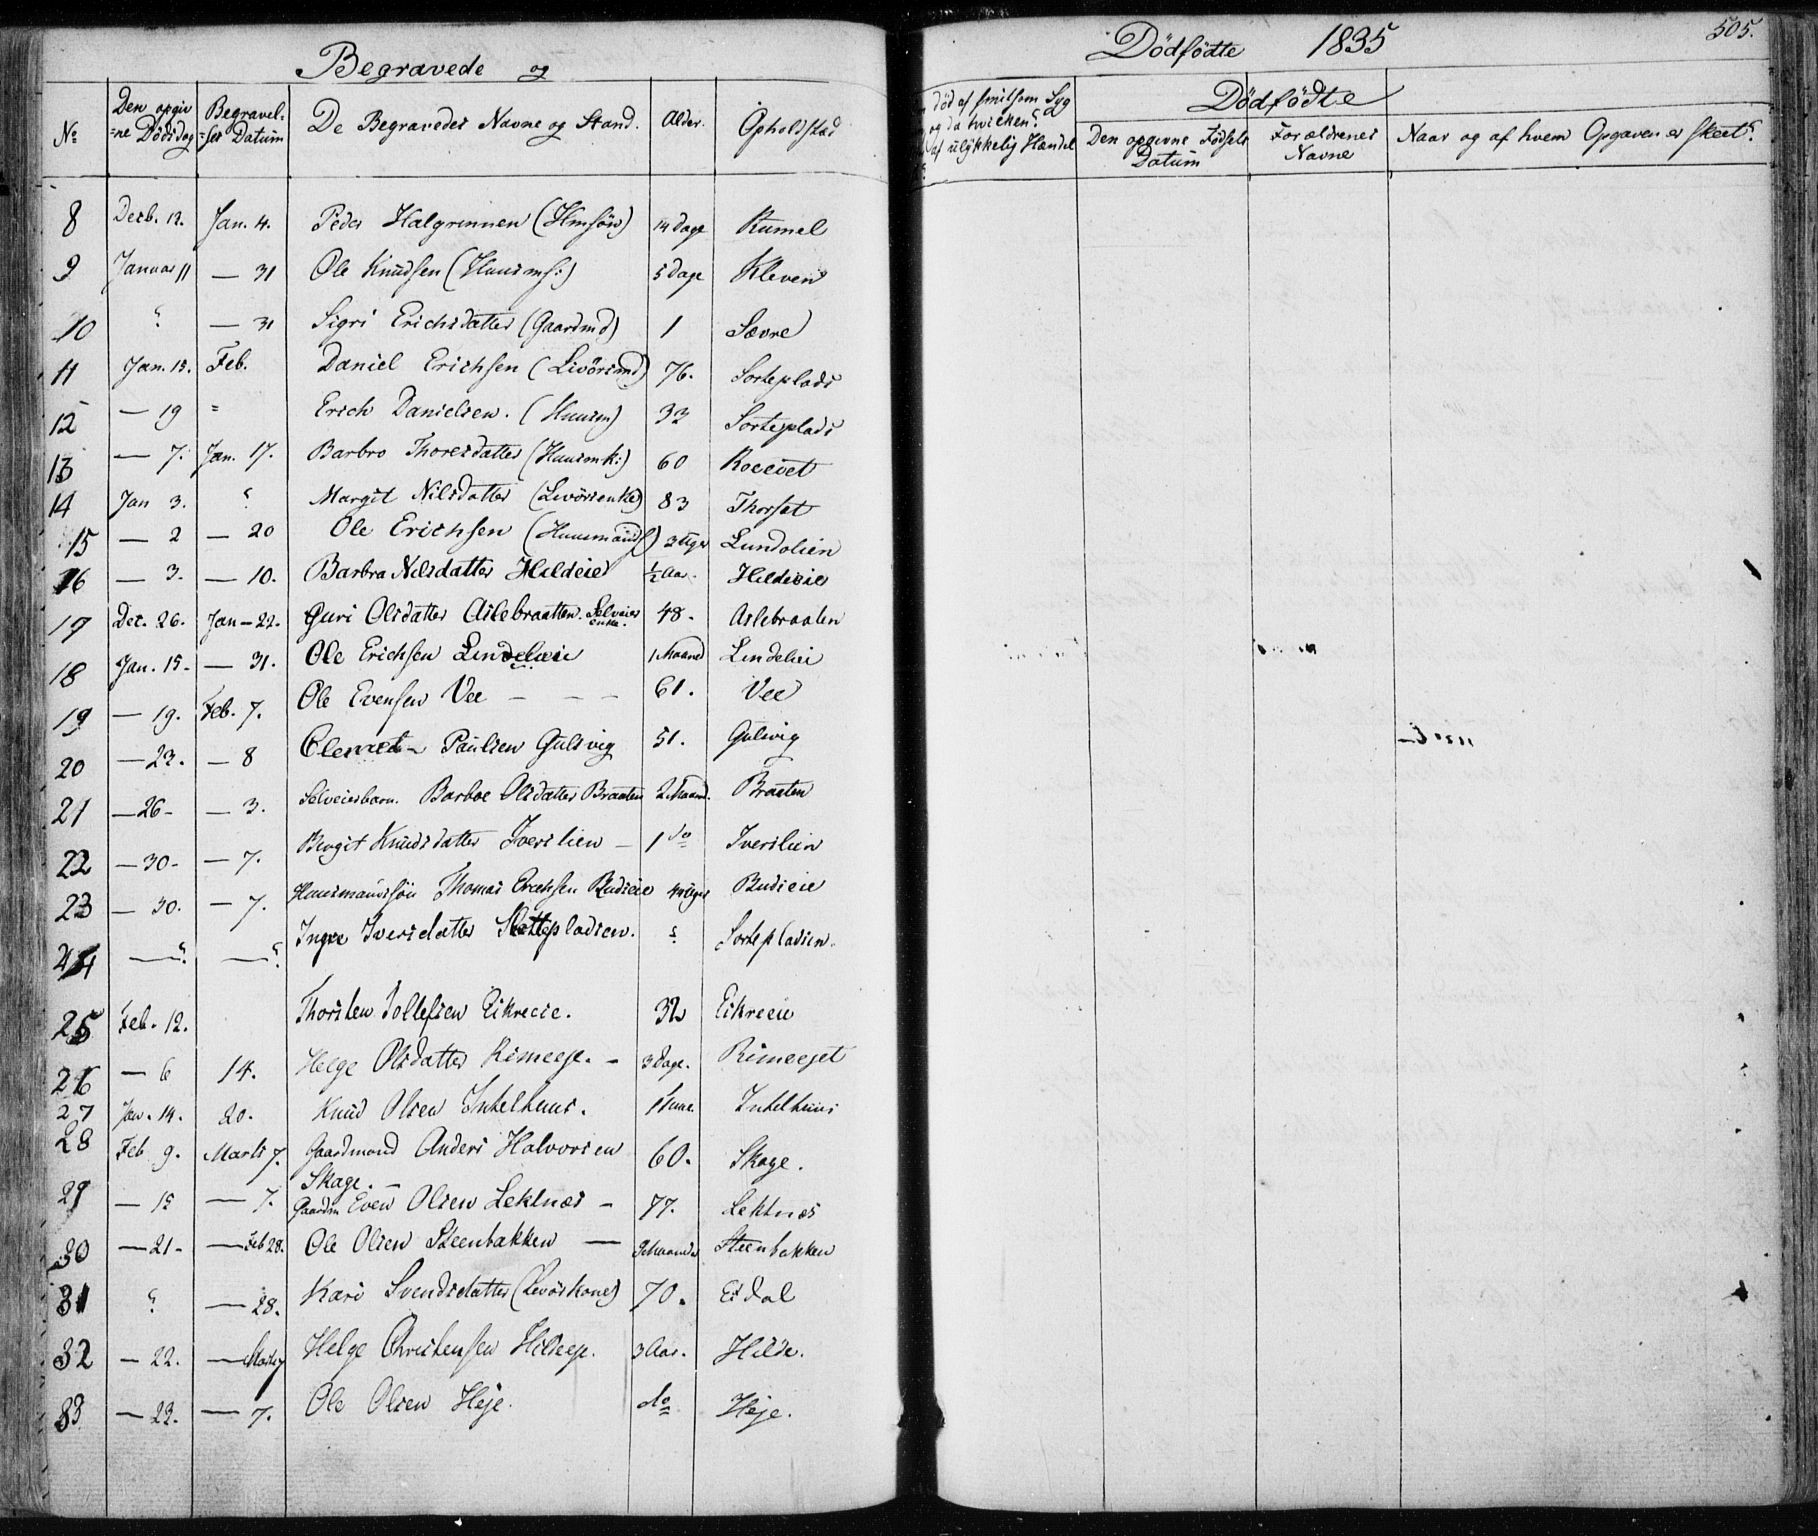 Begravede og
Dödfödte 1835
505.
No
Den opgiv=
=ne Dödsdag
Begravel=
=ses Datum
De Begravedes Navne og Stand.
Alder.
Opholdstad
död af smitsom Syg
og da hvilken?
af ulykkelig Hændel
Dödfödte
Den opgivne Födsels
Datum
Forældrenes
Navne
Naar og af hvem Opgaven er skeet?
8 Decb. 12. Jan. 4. Peder Halgrimsen (Hmsön) 14 Dage Rumel
9 Januar 11 — 31 Ole Knudsen (Huusms:) 5 Dage Kleven
10 — 31 Sigri Erichsdatter (Gaardmd) 1 Sævre
11 Jan. 15. Feb. Daniel Erichsen (Livörsmd) 76. Sorteplads
12 — 19 = Erich Danielsen. (Huusm) 32 Sorteplads
13 — 7. Jan. 17. Barbro Thoresdatter (Huusmk:) 60
14 Jan 3. Margit Nilsdatter (Livörsenke) 83 Thorset
15 — 2 — 20 Ole Erichsen (Huusmands) 3 Uger Lundolien
16 — 3. — 10. Barbra Nilsdatter Hildeie ½ Aar. Hildeeie
17 Dec. 26. Jan — 22. Guri Olsdatter Aslebraatten. Selveier enke. 48. Aslebraaten
18 Jan. 15 — — 31. Ole Erichsen Lindeliei 1 Maaned Lindeliei
19 — 19. Feb. 7. Ole Evensen Vee — — — 61. Vee
20 — 23. — 8 Clemet Paulsen Gulsvig 51. Gulsvig
21 — 26 — — 3. Selveierbarn. Barboe Olsdatter Braaten 2 Maand. Braaten
22 — 30 — — 7. Birgit Knudsdatter Iverslien — 1 do Iverslien
23 — 30. — 7. Huusmandssön Thomas Erichsen Rudseie 4 Uger Rudseie
24 Ingre Iversdatter Sortepladsen. Sortepladsen.
25 Feb. 12. Thorsten Tollefsen Eikreeie. 32 Eikreeie
26 — 6 14. Helge Olsdatter Rimeeje. — 3 Dage. Rimeejet
27 Jan. 14. 20. Knud Olsen Inkelhuus. Inkelhuus
28 Feb 9. Marts 7. Gaardmand Anders Halvorsen 60. Skage.
Skage. —
29 — 15 — 7. Gaardm Even Olsen Lektnes — 77. Lektnes
30 — 21 — — Feb 28. Ole Olsen Steenbakken — Maaneder Steenbakken
31 — 28. Kari Svendsdatter (Livörskone) 70. Eidal
32 — 22. — Marts 7 Helge Christensen Hildeeje. 3 Aar. Hilde.
33 — 22. — 7. Ole Olsen Heje. do Heje.